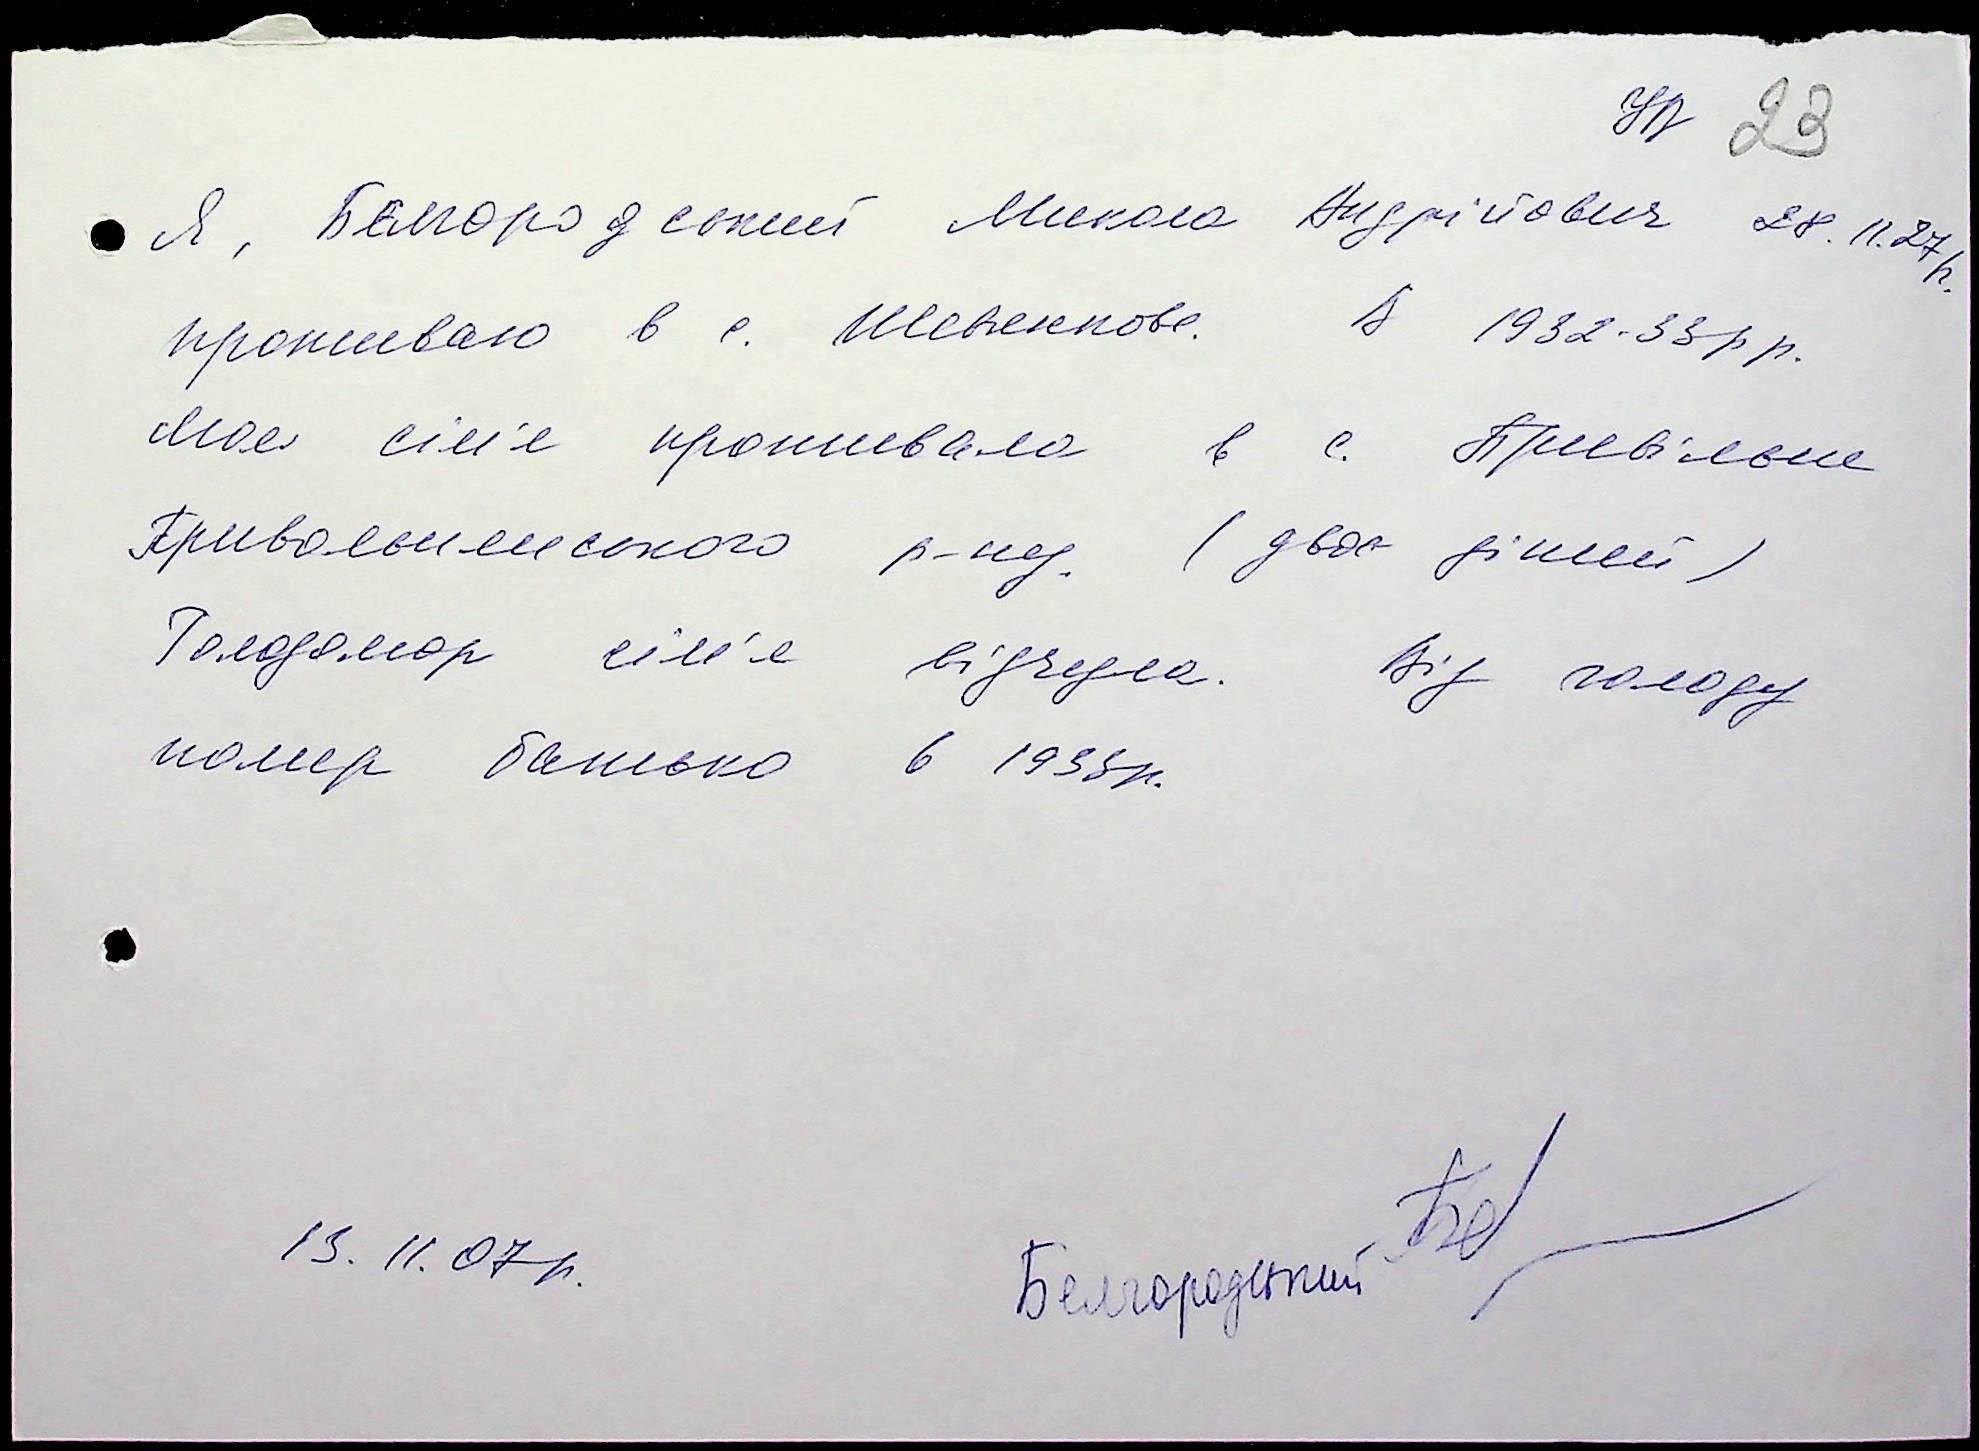 23
Я, Бєлгородський Микола Андрійович 28.11.27р.
проживаю в с. Шевченкове. В 1932-33рр.
моя сім'я проживала в с. Привільне
Привольнинського р-ну. (двоє дітей)
Голодомор сім'я відчула. Від голоду
помер батько в 1933р.
13.11.07р.
Бєлгородський